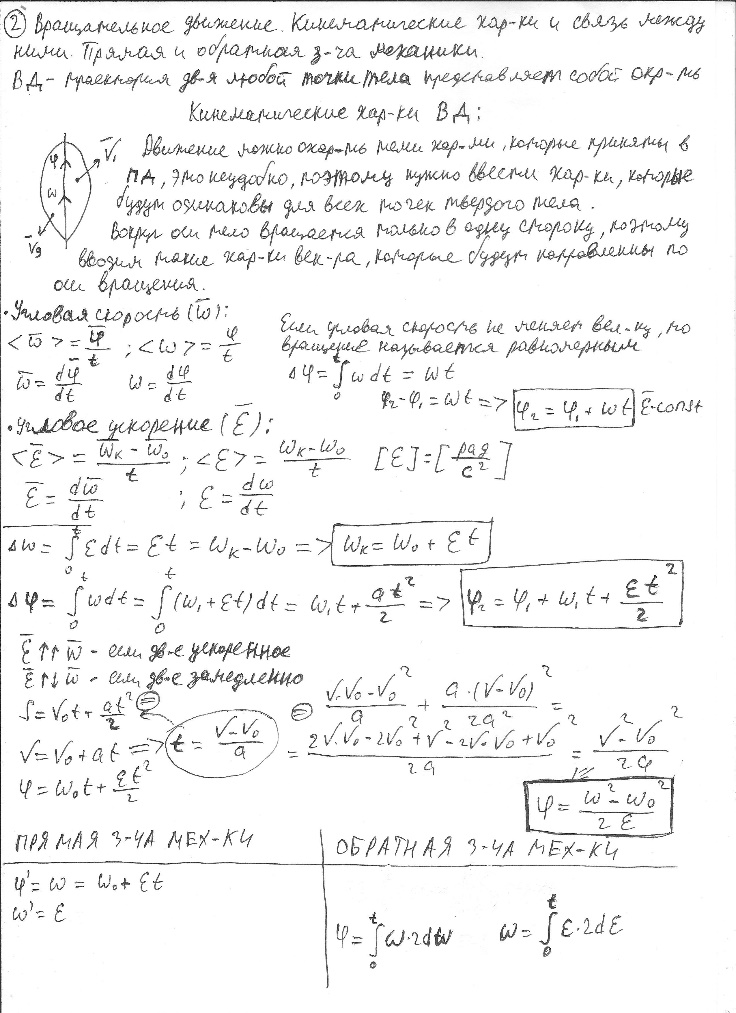 ② Вращательное движение. Кинематические хар-ки и связь между
ними. Прямая и обратная з-ча механики.
ВД - траектория дв-я любой точки тела представляет собой окр-ть
Кинематические хар-ки ВД:
Движение можно охар-ть теми хар-ми, которые приняты в
ПД, это неудобно, поэтому нужно ввести хар-ки, которые
будут одинаковы для всех точек твердого тела.
Вокруг оси тело вращается только в одну сторону, поэтому
вводим такие хар-ки век-ра, которые будут направленны по
оси вращения.
φ ω V̄₁ V̄g
• Угловая скорость (ω̄):
<ω̄> = φ̄/t ; <ω> = φ/t
Если угловая скорость не меняет вел-ну, то
вращение называется равномерным
ω̄ = dφ̄/dt ω = dφ/dt
Δφ = ∫₀ᵗ ω dt = ωt
φ₂-φ₁ = ωt => φ₂ = φ₁ + ωt ε̄-const
• Угловое ускорение (ε̄):
<ε̄> = (ω̄ₖ - ω̄₀)/t ; <ε> = (ωₖ - ω₀)/t [ε] = [рад/с²]
ε̄ = dω̄/dt ; ε = dω/dt
Δω = ∫₀ᵗ εdt = εt = ωₖ - ω₀ => ωₖ = ω₀ + εt
Δφ = ∫₀ᵗ ωdt = ∫₀ᵗ (ω₁ + εt)dt = ω₁t + at²/2 => φ₂ = φ₁ + ω₁t + εt²/2
ε̄ ↑↑ ω̄ - если дв-е ускоренное
ε̄ ↑↓ ω̄ - если дв-е замедленно
S = V₀t + at²/2 = = (V·V₀ - V₀²)/a + a·(V-V₀)²/2a² =
V = V₀ + at => t = (V-V₀)/a
= (2V·V₀ - 2V₀² + V² - 2V·V₀ + V₀²)/2a = (V² - V₀²)/2a
φ = ω₀t + εt²/2
φ = (ω² - ω₀²)/2ε
ПРЯМАЯ З-ЧА МЕХ-КИ
φ' = ω = ω₀ + εt
ω' = ε
ОБРАТНАЯ З-ЧА МЕХ-КИ
φ = ∫₀ᵗ ω·2dω ω = ∫₀ᵗ ε·2dε